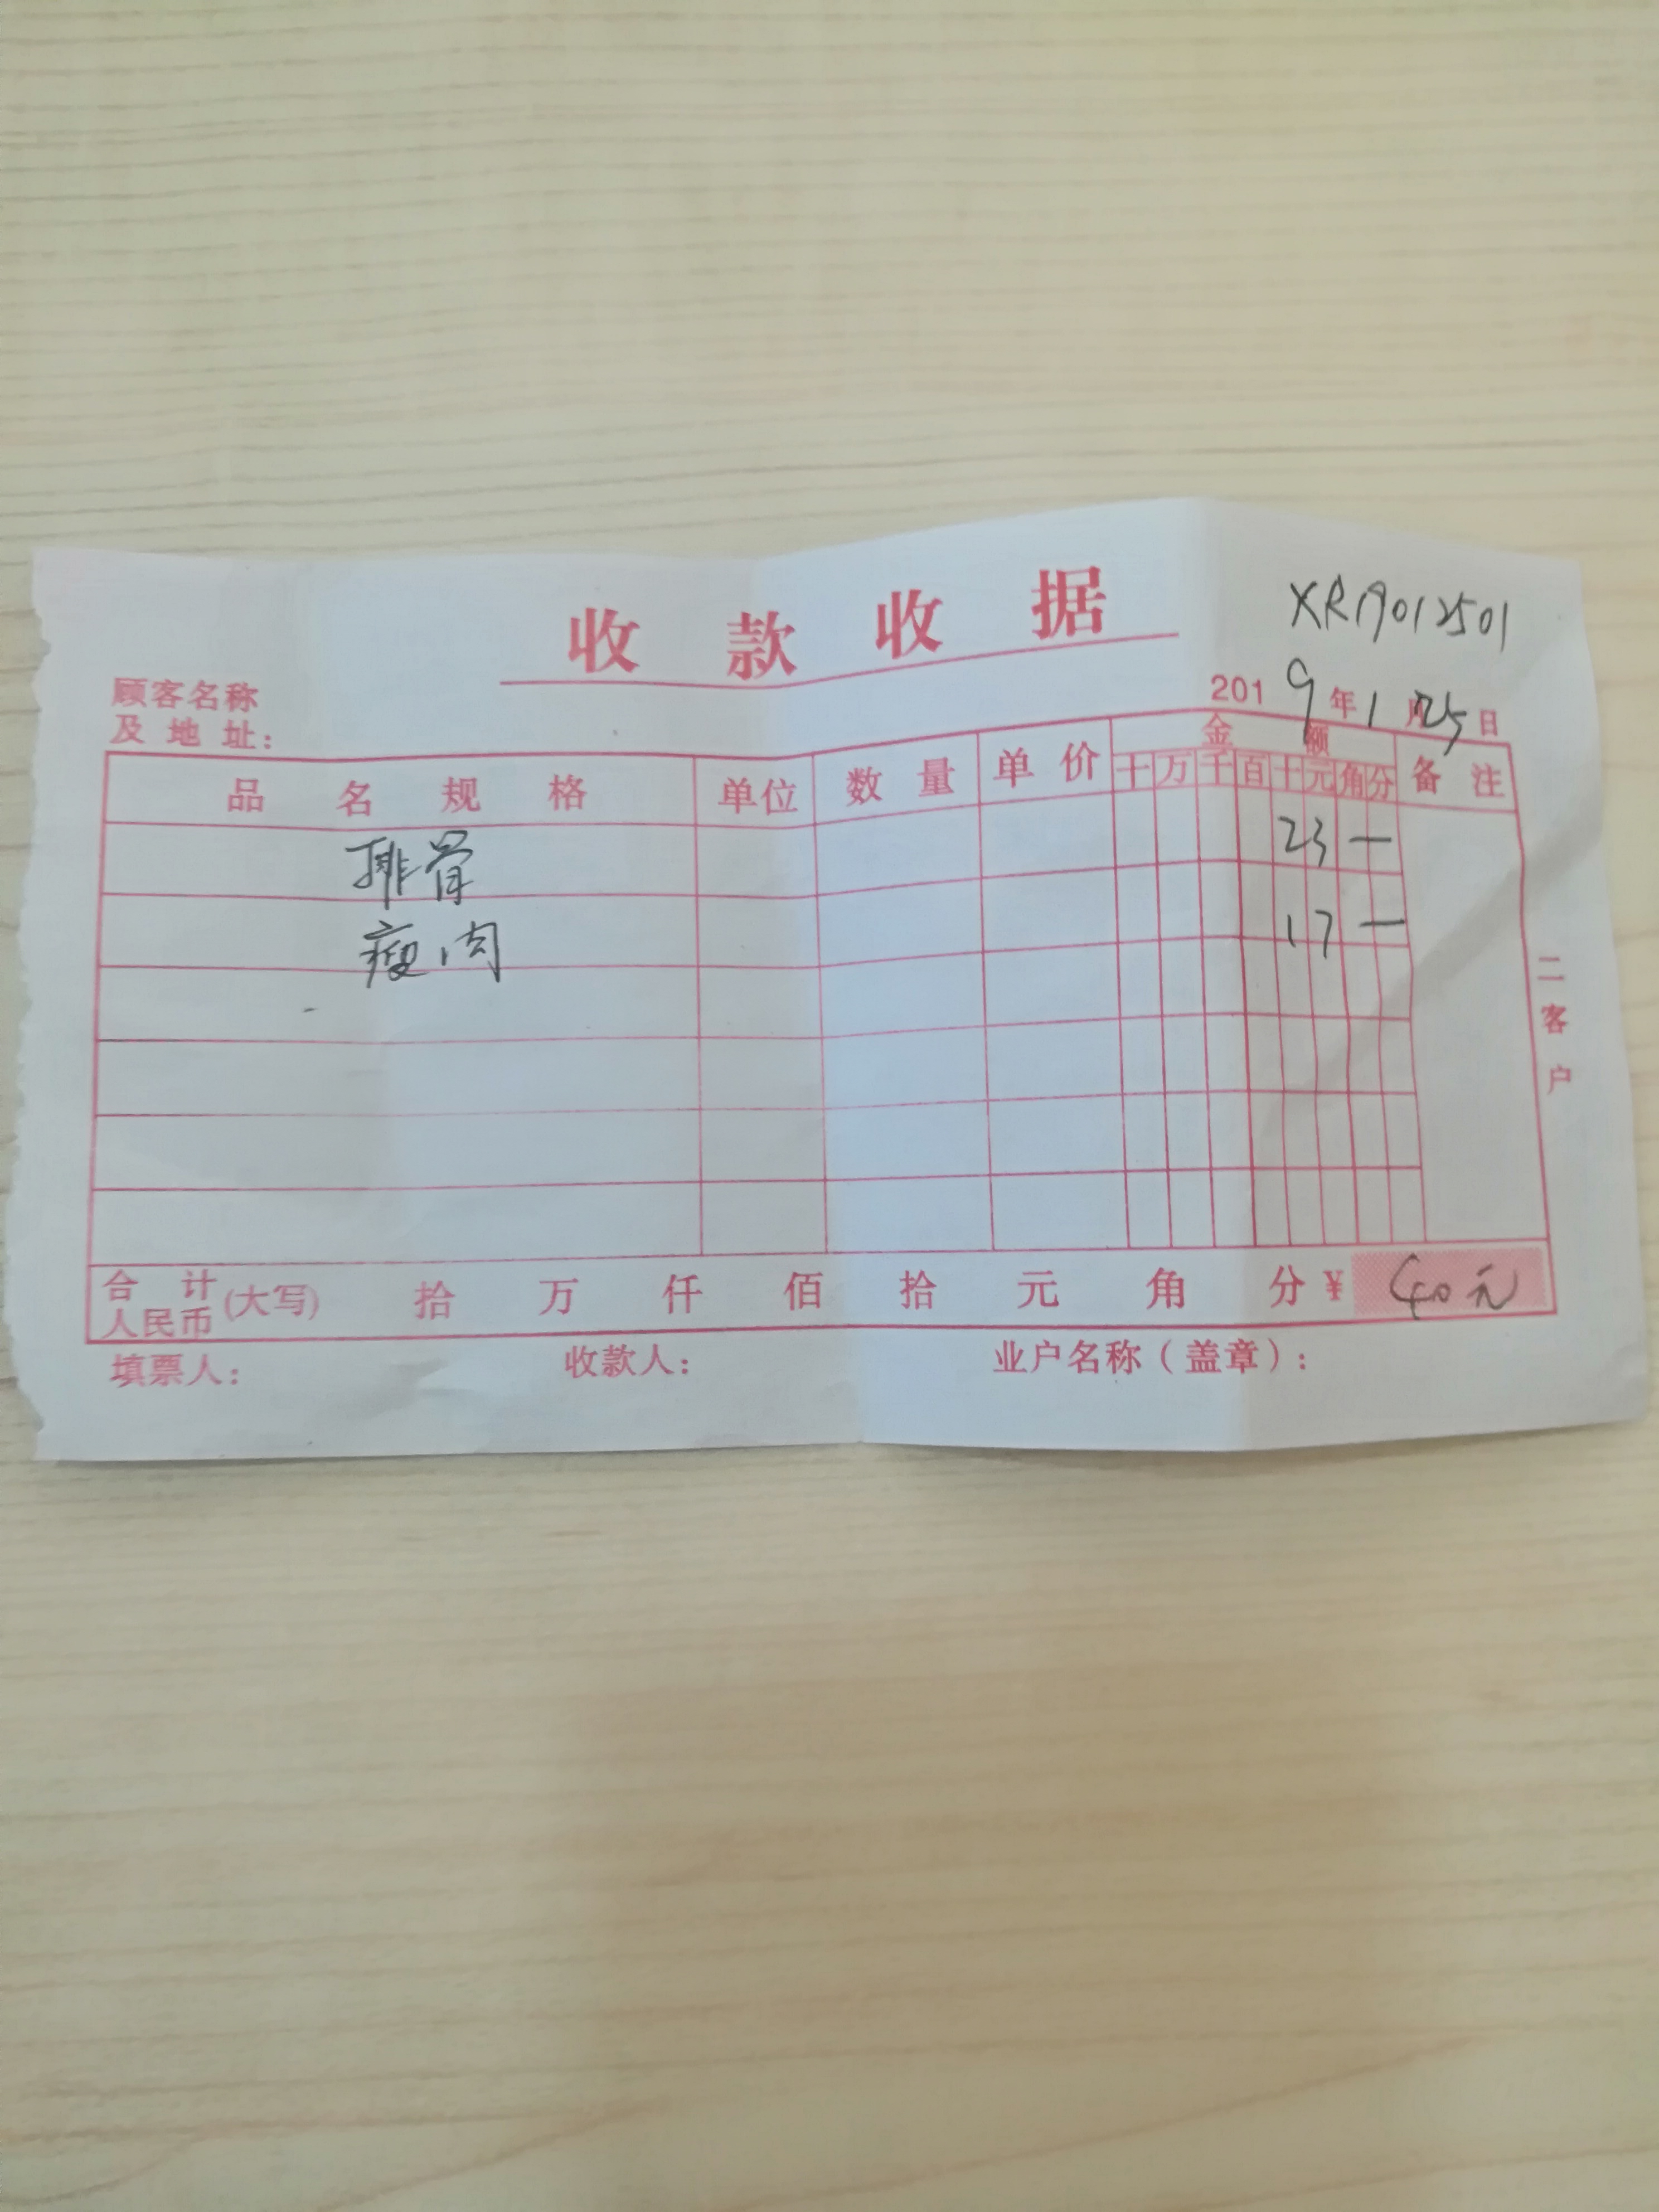 收款收据
XR19012501
顾客名称
及地址：
2019年1月25日
品名规格 单位 数量 单价 金额 备注
十万千百十元角分
排骨 23—
瘦肉 17—
二客户
合计
人民币(大写) 拾 万 仟 佰 拾 元 角 分 ¥ 40元
填票人： 收款人： 业户名称（盖章）：